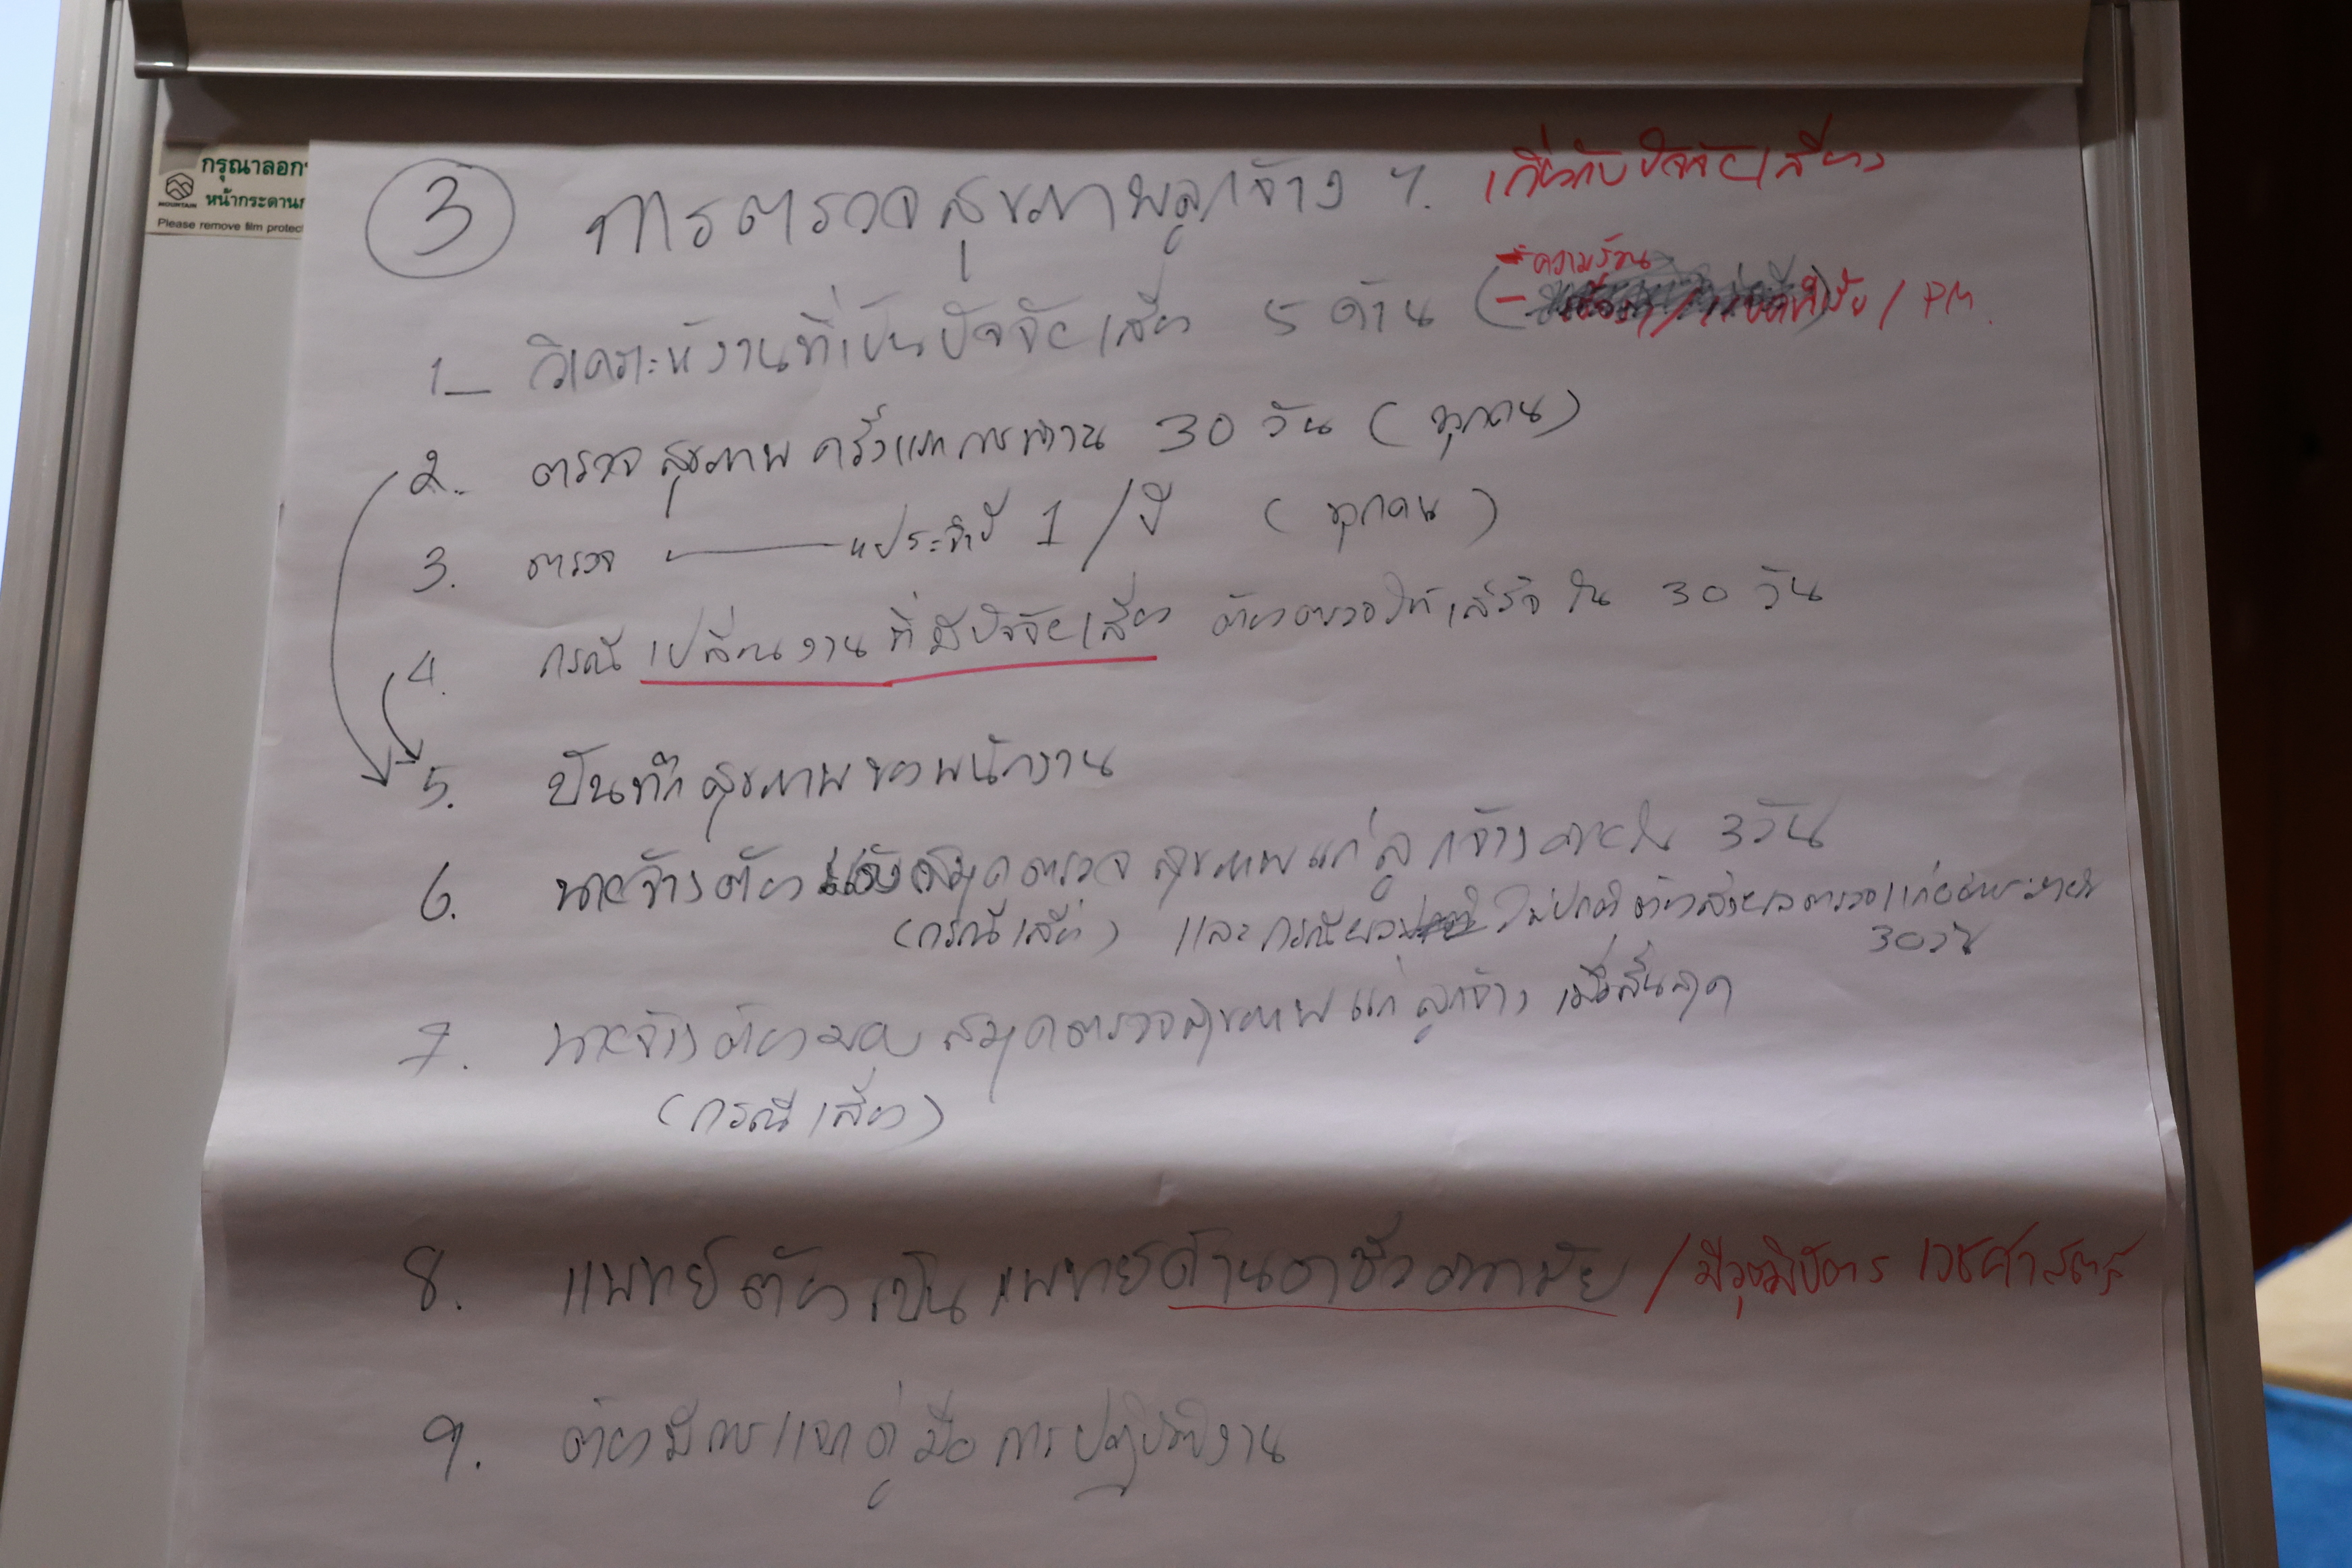 กรุณาลอก
หน้ากระดาน
MOUNTAIN
Please remove film protec
3 การตรวจสุขภาพลูกจ้าง ฯ. เกี่ยวกับปัจจัยเสี่ยง
- ความร้อน
1_ วิเคราะห์งานที่เป็นปัจจัยเสี่ยง 5 ด้าน ( - / / PM.
2. ตรวจสุขภาพครั้งแรกการทำงาน 30 วัน (ทุกคน)
3. ตรวจ ——— "ประจำปี 1 / ปี (ทุกคน)
4. กรณี เปลี่ยนงานที่มีปัจจัยเสี่ยง ต้องตรวจให้เสร็จใน 30 วัน
5. บันทึกสุขภาพของพนักงาน
6. นายจ้างต้อง สมุดตรวจสุขภาพแก่ลูกจ้างภายใน 3 วัน
(กรณีเสี่ยง) และกรณีผล ไม่ปกติ ต้องส่งผลตรวจแก่ ภายใน
30 วัน
7. นายจ้างต้องมอบสมุดตรวจสุขภาพแก่ลูกจ้าง เมื่อสิ้นสุด
(กรณีเสี่ยง)
8. แพทย์ต้องเป็นแพทย์ด้านอาชีวอนามัย / มีวุฒิบัตร เวชศาสตร์
9. ต้องมีการแจกคู่มือการปฏิบัติงาน